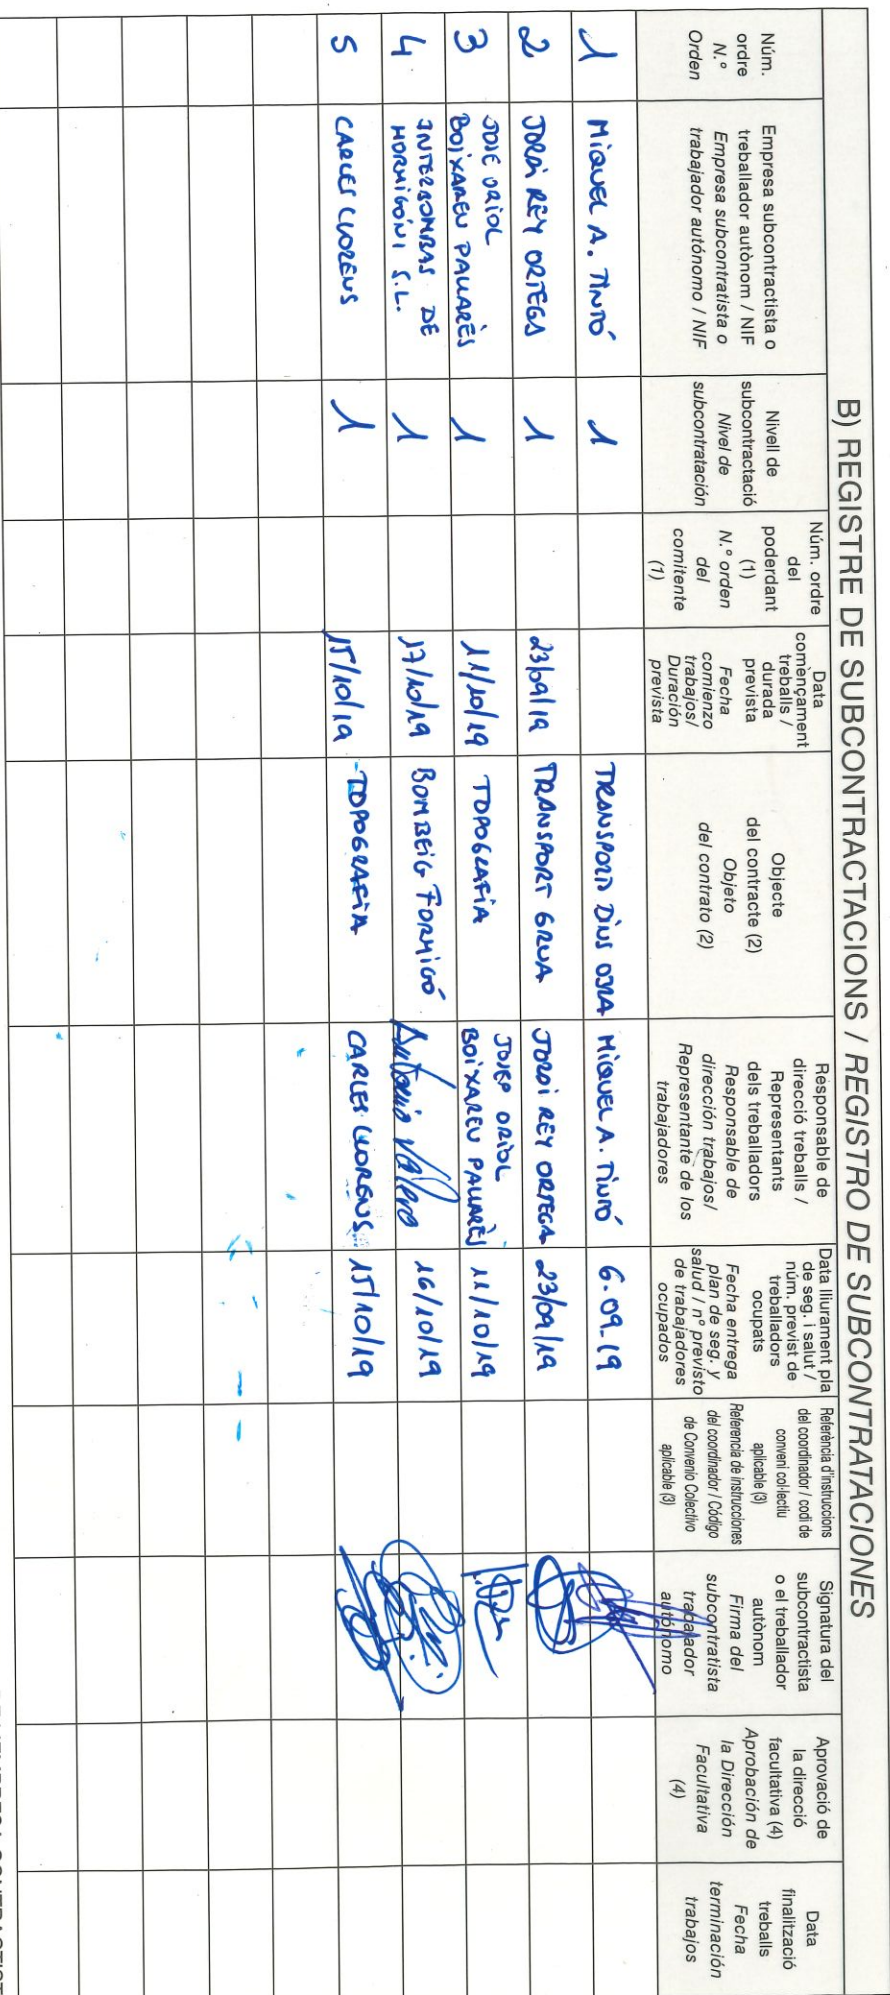 B) REGISTRE DE SUBCONTRACTACIONS / REGISTRO DE SUBCONTRATACIONES
Núm.
ordre
N.º
Orden
Empresa subcontractista o
treballador autònom / NIF
Empresa subcontratista o
trabajador autónomo / NIF
Nivell de
subcontractació
Nivel de
subcontratación
Núm. ordre
del
poderdant
(1)
N.º orden
del
comitente
(1)
Data
començament
treballs /
durada
prevista
Fecha
comienzo
trabajos/
Duración
prevista
Objecte
del contracte (2)
Objeto
del contrato (2)
Responsable de
direcció treballs /
Representants
dels treballadors
Responsable de
dirección trabajos/
Representante de los
trabajadores
Data lliurament pla
de seg. i salut /
núm. previst de
treballadors
ocupats
Fecha entrega
plan de seg. y
salud / nº previsto
de trabajadores
ocupados
Referència d'instruccions
del coordinador / codi de
conveni col·lectiu
aplicable (3)
Referencia de instrucciones
del coordinador / Código
de Convenio Colectivo
aplicable (3)
Signatura del
subcontractista
o el treballador
autònom
Firma del
subcontratista
trabajador
autónomo
Aprovació de
la direcció
facultativa (4)
Aprobación de
la Dirección
Facultativa
(4)
Data
finalització
treballs
Fecha
terminación
trabajos
1 MIQUEL A. TINTÓ 1 TRANSPORT DINS OBRA MIQUEL A. TINTÓ 6-09-19
2 JORDI REY ORTEGA 1 23/09/19 TRANSPORT GRUA JORDI REY ORTEGA 23/09/19
3 JOSE ORIOL
BOIXAREU PALLARÈS 1 11/10/19 TOPOGRAFIA JOSEP ORIOL
BOIXAREU PALLARÈS 11/10/19
4 INTERBOMBAS DE
HORMIGÓNI S.L. 1 17/10/19 BOMBEIG FORMIGÓ Antonio Valero 16/10/19
5 CARLES LLORENS 1 15/10/19 TOPOGRAFIA CARLES LLORENS 15/10/19